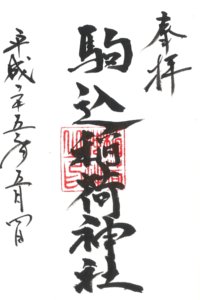 奉拝
駒込稲荷神社
平成二十五年五月四日